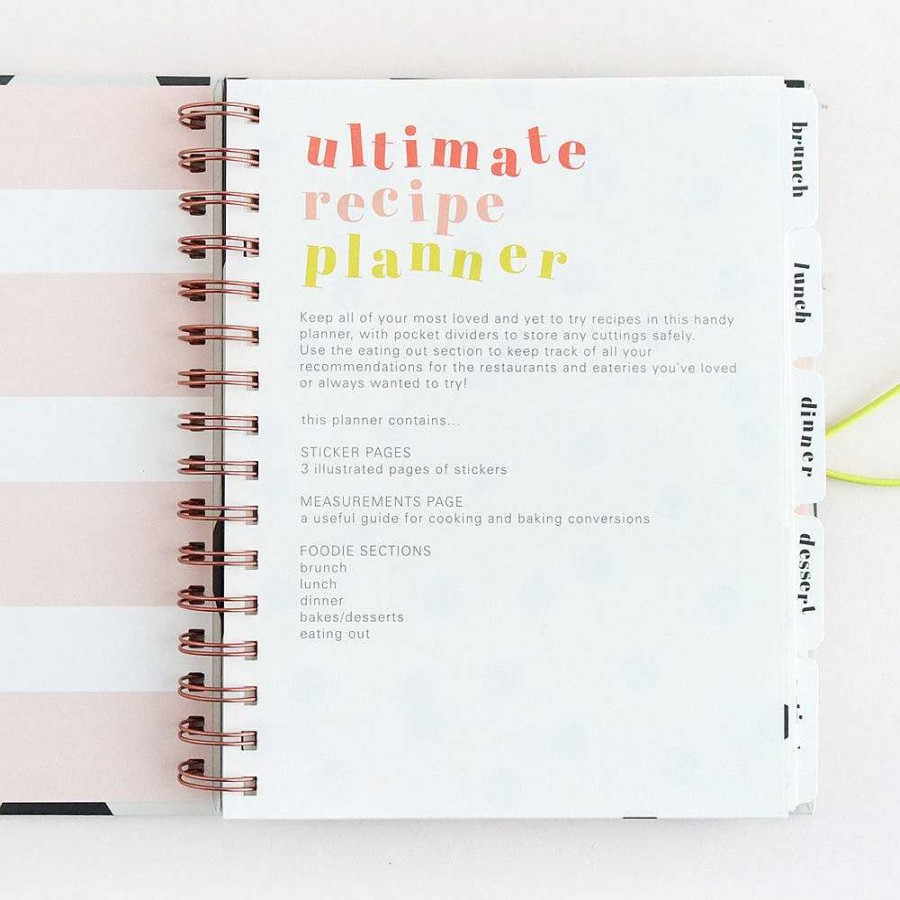 ultimate
recipe
planner
Keep all of your most loved and yet to try recipes in this handy
planner, with pocket dividers to store any cuttings safely.
Use the eating out section to keep track of all your
recommendations for the restaurants and eateries you've loved
or always wanted to try!
this planner contains...
STICKER PAGES
3 illustrated pages of stickers
MEASUREMENTS PAGE
a useful guide for cooking and baking conversions
FOODIE SECTIONS
brunch
lunch
dinner
bakes/desserts
eating out
brunch
lunch
dinner
dessert